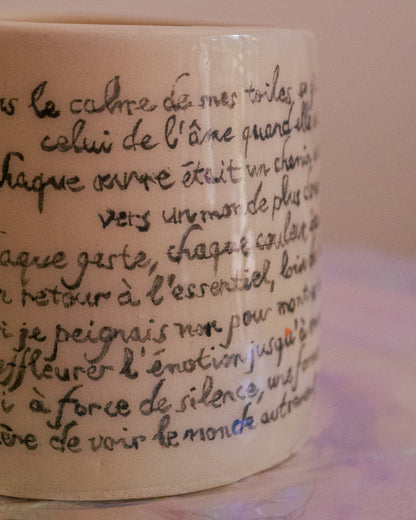 le calme de mes toiles, se
celui de l'âme quand elle
chaque œuvre était un chemin
vers un monde plus
geste, chaque couleur
retour à l'essentiel, loin
je peignais non pour
effleurer l'émotion jusqu'à
à force de silence, une
de voir le monde autrement